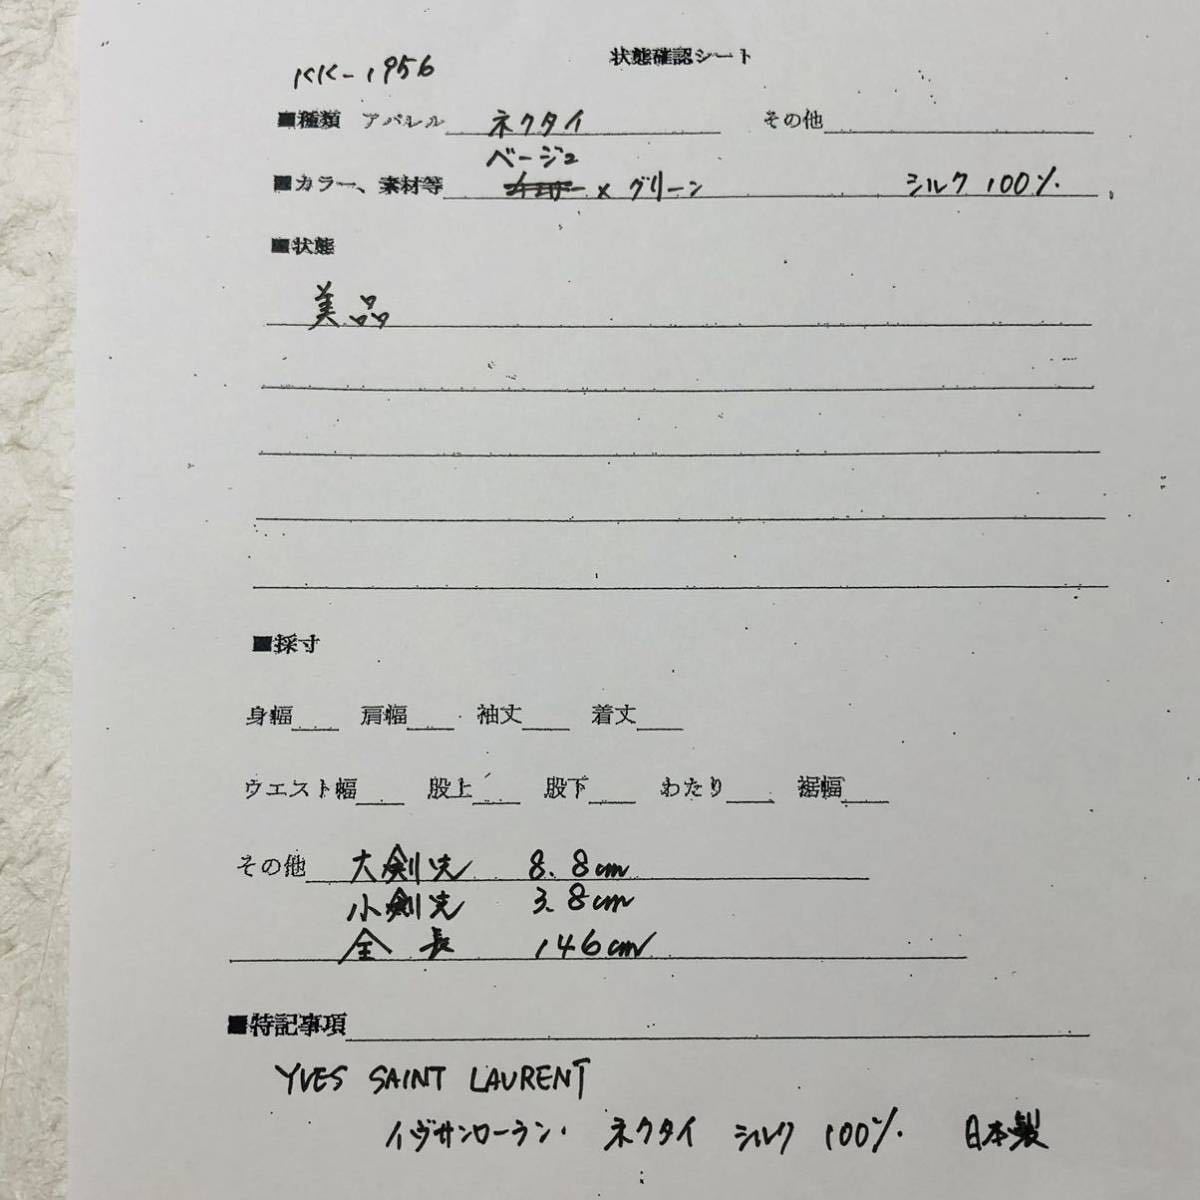 状態確認シート
KK-1956
■種類 アパレル ネクタイ その他
ベージュ
■カラー、素材等 × グリーン シルク 100%
■状態
美品
■採寸
身幅 肩幅 袖丈 着丈
ウエスト幅 股上 股下 わたり 裾幅
その他 大剣先 8.8cm
小剣先 3.8cm
全長 146cm
■特記事項
YVES SAINT LAURENT
イヴサンローラン. ネクタイ シルク 100% 日本製